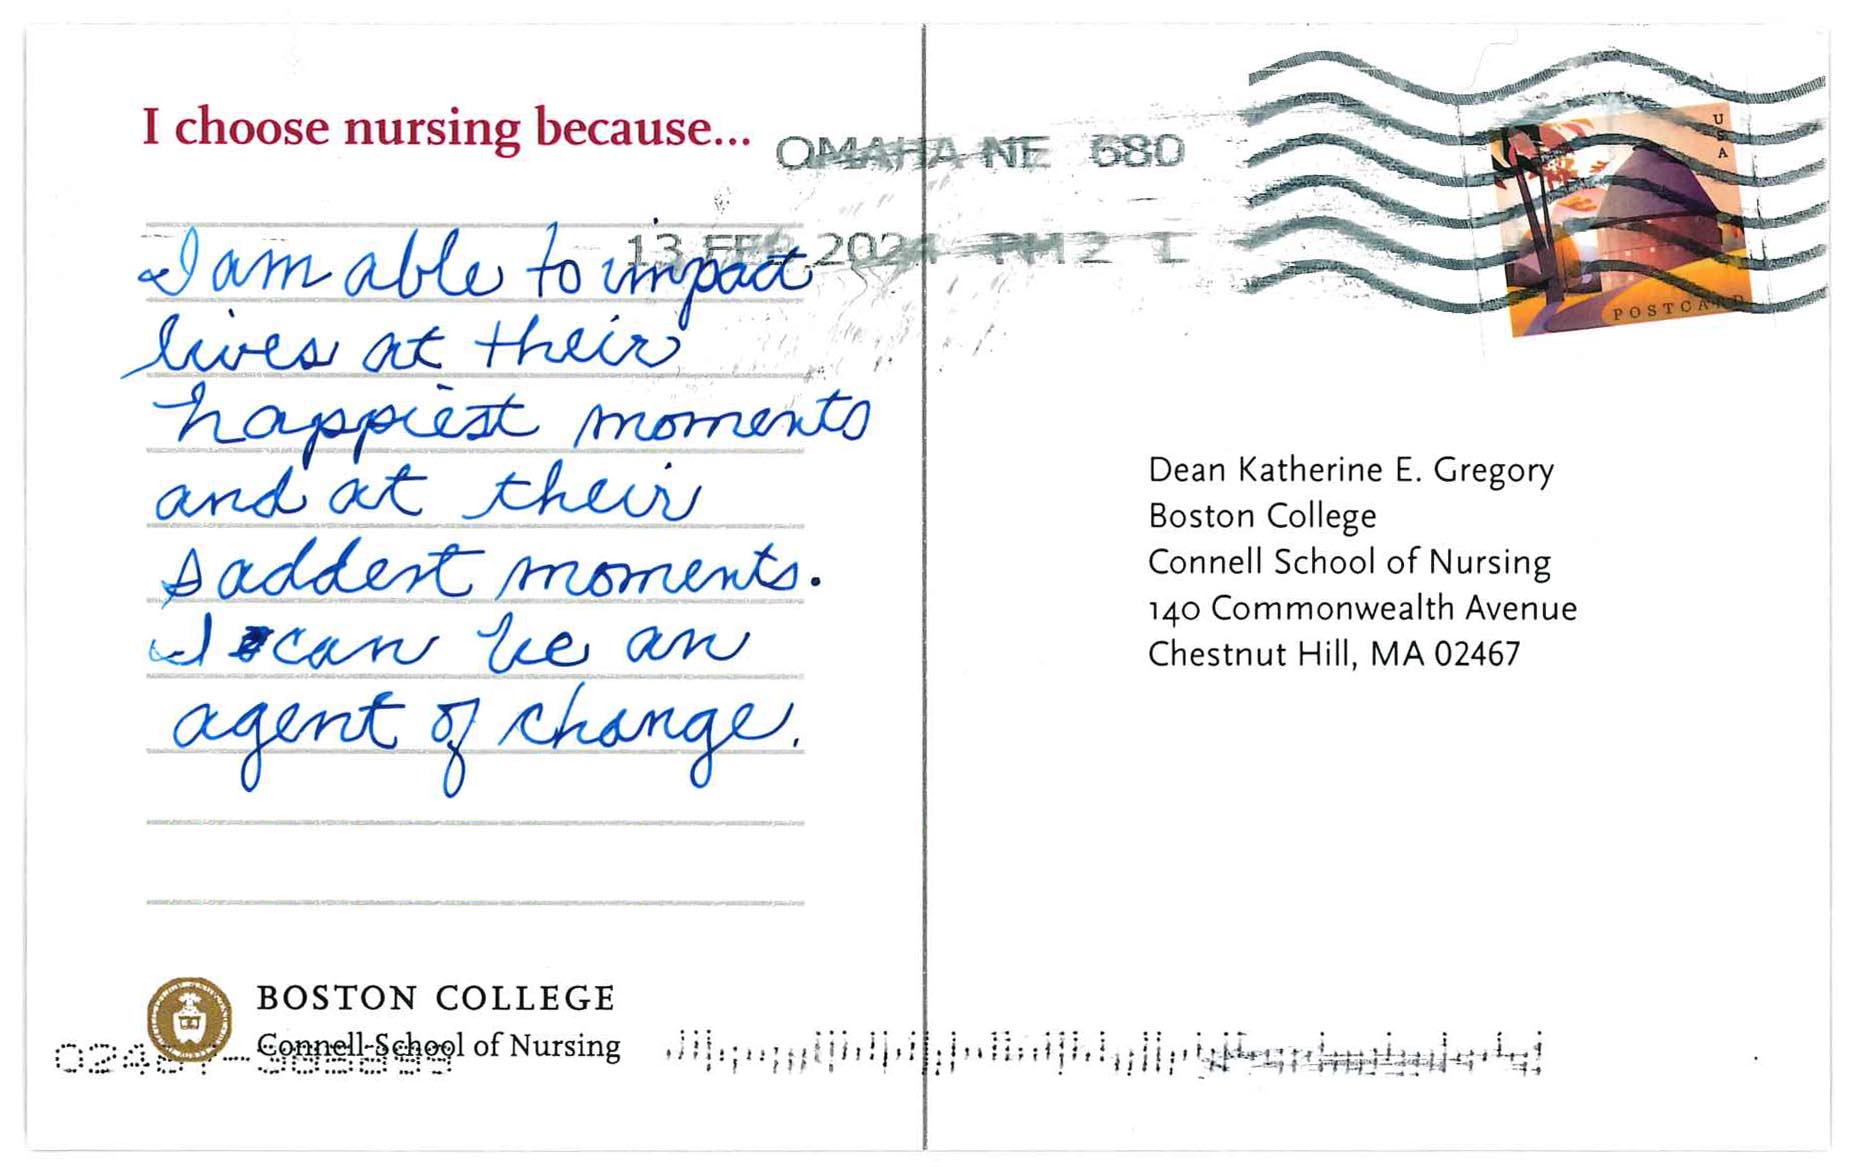 I choose nursing because...
I am able to impact
lives at their
happiest moments
and at their
saddest moments.
I can be an
agent of change.
BOSTON COLLEGE
Connell School of Nursing
OMAHA NE 680
13 FEB 2024 PM 2 L
USA
POSTCARD
Dean Katherine E. Gregory
Boston College
Connell School of Nursing
140 Commonwealth Avenue
Chestnut Hill, MA 02467